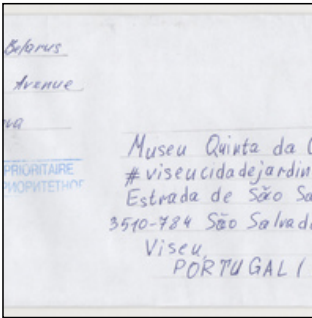 Belarus
Avenue
PRIORITAIRE
Museu Quinta da
#viseucidadejardin
Estrada de São Sa
3510-784 São Salvad
Viseu,
PORTUGAL